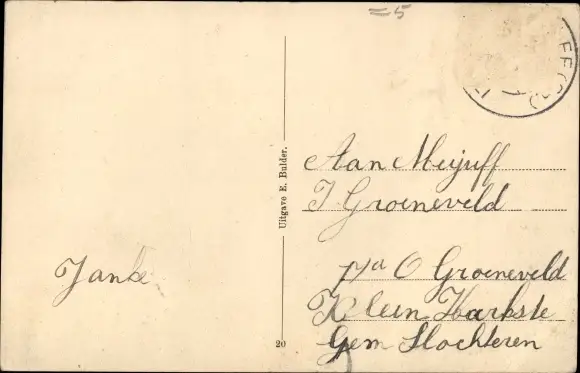 =5
Aan Mejuff
I Groeneveld
p/a O Groeneveld
Klein Harkste
Gem Slochteren
Janke
Uitgave E. Bulder.
20